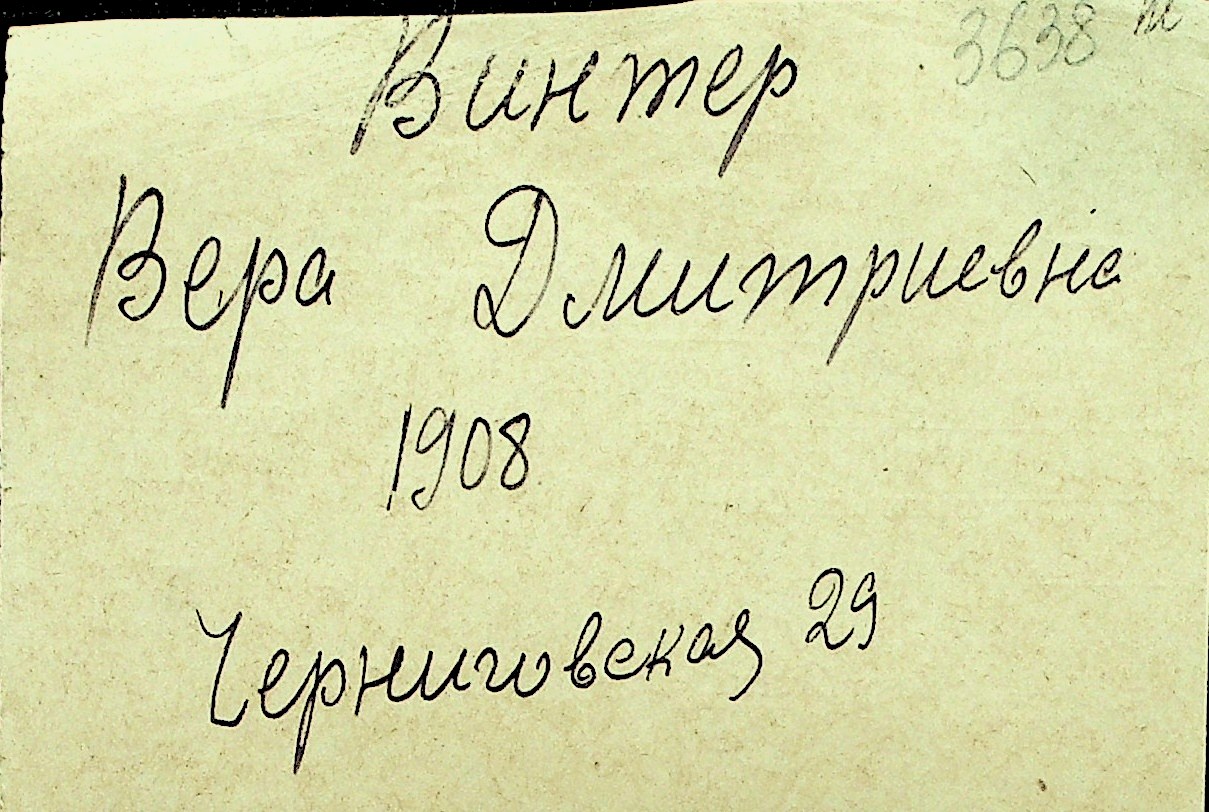 3638 т
Винтер
Вера Дмитриевна
1908
Черниговская 29